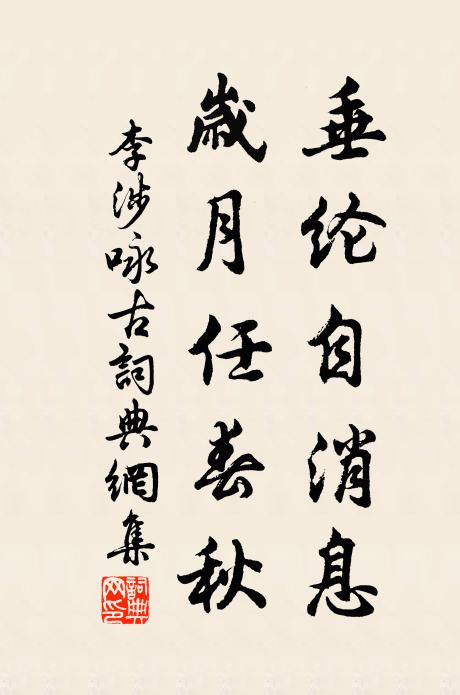 垂纶自消息
歲月任春秋
李涉咏古詞典網集
詞典网印